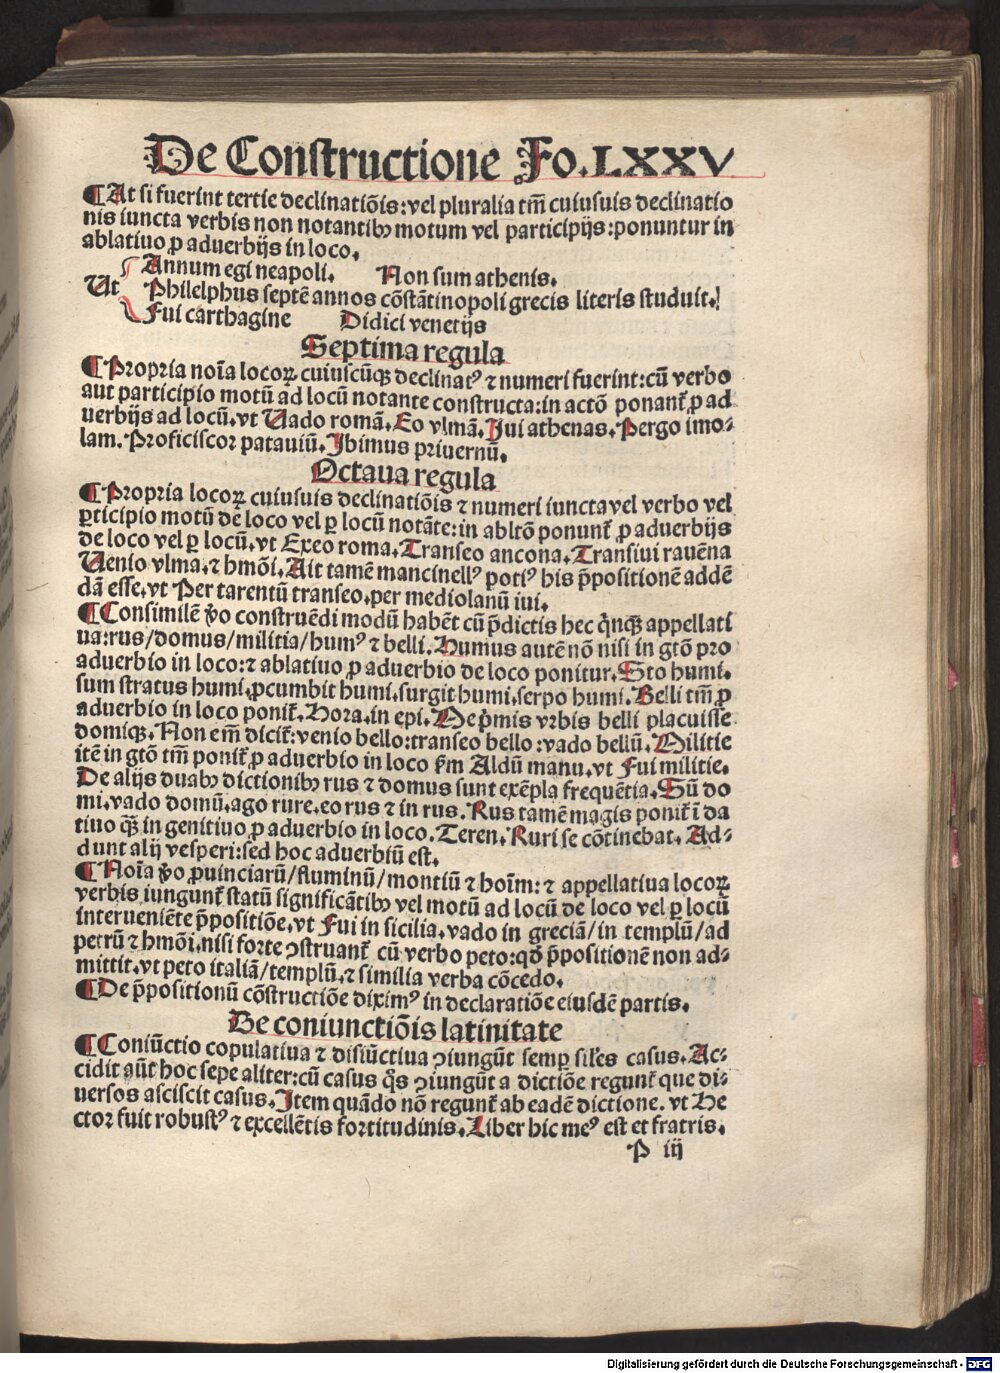 De Constructione Fo.LXXV
¶At si fuerint tertie declinatiõis:vel pluralia tm̃ cuiusuis declinatio
nis iuncta verbis non notantibꝰ motum vel participijs:ponuntur in
ablatiuo ꝓ aduerbijs in loco.
Annum egi neapoli. Non sum athenis.
Ut Philelphus septẽ annos cõstãtinopoli grecis literis studuit.
Fui carthagine Didici venetijs
Septima regula
¶Propria noĩa locoꝝ cuiuscũqꝫ declinatꝰ ⁊ numeri fuerint:cũ verbo
aut participio motũ ad locũ notante constructa:in actõ ponant᷑ ꝓ ad
uerbijs ad locũ.vt Uado romã.Eo vlmã.Jui athenas.Pergo imo-
lam.Proficiscor patauiũ.Jbimus priuernũ.
Octaua regula
¶Propria locoꝝ cuiusuis declinatiõis ⁊ numeri iuncta vel verbo vel
ꝑticipio motũ de loco vel ꝑ locũ notãte:in abltõ ponunt᷑ ꝓ aduerbijs
de loco vel ꝑ locũ.vt Exeo roma.Transeo ancona.Transiui rauẽna
Uenio vlma.⁊ hmõi.Ait tamẽ mancinellꝰ potiꝰ his p̃positionẽ addẽ
dã esse.vt Per tarentũ transeo.per mediolanũ iui.
¶Consimilẽ ꝟo construẽdi modũ habẽt cũ p̃dictis hec q̃nqꝫ appellati
ua:rus/domus/militia/humꝰ ⁊ belli.Humus autẽ nõ nisi in gtõ pro
aduerbio in loco:⁊ ablatiuo ꝓ aduerbio de loco ponitur.Sto humi.
sum stratus humi.ꝓcumbit humi.surgit humi.serpo humi.Belli tm̃ ꝓ
aduerbio in loco ponit᷑.Hora.in epi.Me p̃mis vrbis belli placuisse
domiqꝫ.Non em̃ dicit᷑:venio bello:transeo bello:vado bellũ.Militie
itẽ in gtõ tm̃ ponit᷑ ꝓ aduerbio in loco ẜm Aldũ manu.vt Fui militie.
De alijs duabꝰ dictionibꝰ rus ⁊ domus sunt exẽpla frequẽtia.Sũ do
mi.vado domũ.ago rure.eo rus ⁊ in rus.Rus tamẽ magis ponit᷑ ĩ da
tiuo qꝫ̃ in genitiuo ꝓ aduerbio in loco.Teren.Ruri se cõtinebat.Ad-
dunt alij vesperi:sed hoc aduerbiũ est.
¶Noĩa ꝟo ꝓuinciarũ/fluminũ/montiũ ⁊ hoĩm:⁊ appellatiua locoꝝ
verbis iungunt᷑ statũ significãtibꝰ vel motũ ad locũ de loco vel ꝑ locũ
interueniẽte p̃positiõe.vt Fui in sicilia.vado in greciã/in templũ/ad
petrũ ⁊ hmõi.nisi forte ꝯstruant᷑ cũ verbo peto:qđ p̃positionẽ non ad-
mittit.vt peto italiã/templũ.⁊ similia verba cõcedo.
¶De p̃positionũ cõstructiõe diximꝰ in declaratiõe eiusdẽ partis.
De coniunctiõis latinitate
¶Coniũctio copulatiua ⁊ disiũctiua ꝯiungũt semꝑ siles casus.Ac-
cidit aũt hoc sepe aliter:cũ casus q̃s ꝯiungũt a dictiõe regunt᷑ que di-
uersos asciscit casus.Jtem quãdo nõ regunt᷑ ab eadẽ dictione.vt He
ctor fuit robustꝰ ⁊ excellẽtis fortitudinis.Liber hic meꝰ est et fratris.
P iij
Digitalisierung gefördert durch die Deutsche Forschungsgemeinschaft - DFG